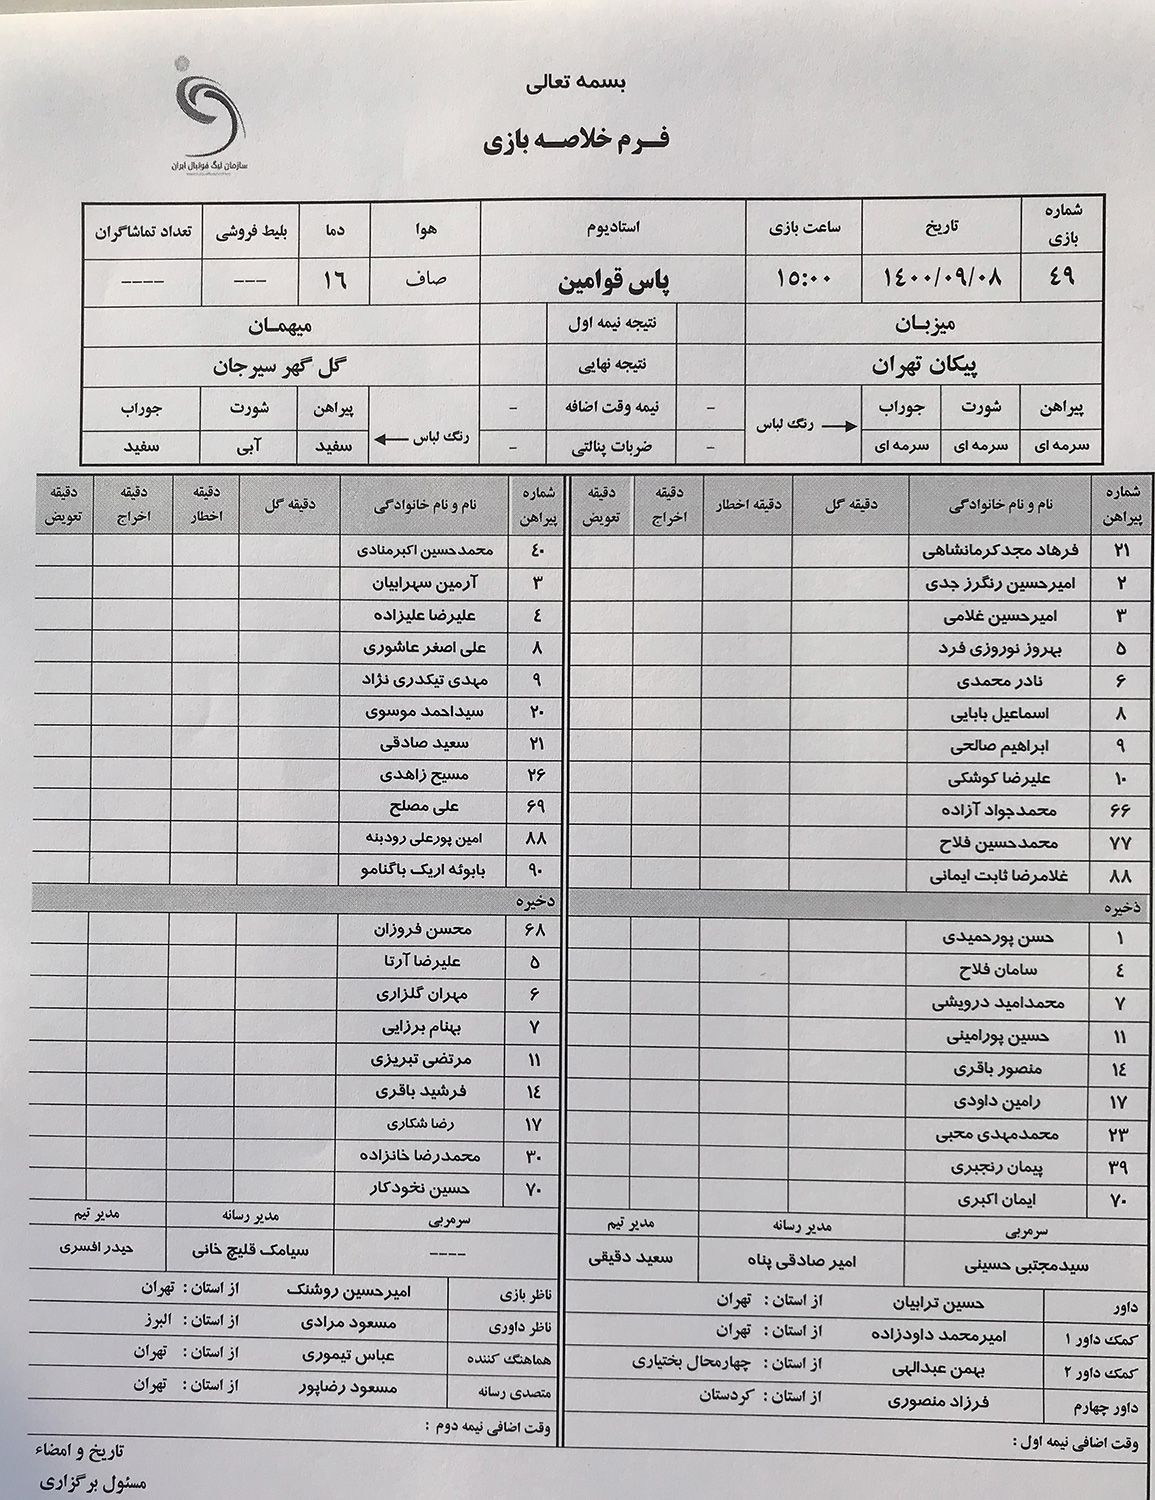 بسمه تعالی
فـرم خلاصـه بازی
سازمان لیگ فوتبال ایران
شماره بازی تاریخ ساعت بازی استادیوم هوا دما بلیط فروشی تعداد تماشاگران
٤٩ ١٤٠٠/٠٩/٠٨ ١٥:٠٠ پاس قوامین صاف ١٦ --- ----
میزبـان نتیجه نیمه اول میهمـان
پیکان تهران نتیجه نهایی گل گهر سیرجان
پیراهن شورت جوراب رنگ لباس - نیمه وقت اضافه - رنگ لباس پیراهن شورت جوراب
سرمه ای سرمه ای سرمه ای - ضربات پنالتی - سفید آبی سفید
شماره پیراهن نام و نام خانوادگی دقیقه گل دقیقه اخطار دقیقه اخراج دقیقه تعویض
٢١ فرهاد مجدکرمانشاهی
٢ امیرحسین رنگرز جدی
٣ امیرحسین غلامی
٥ بهروز نوروزی فرد
۶ نادر محمدی
٨ اسماعیل بابایی
٩ ابراهیم صالحی
١٠ علیرضا کوشکی
۶۶ محمدجواد آزاده
٧٧ محمدحسین فلاح
٨٨ غلامرضا ثابت ایمانی
ذخیره
١ حسن پورحمیدی
٤ سامان فلاح
٧ محمدامید درویشی
١١ حسین پورامینی
١٤ منصور باقری
١٧ رامین داودی
٢٣ محمدمهدی محبی
٣٩ پیمان رنجبری
٧٠ ایمان اکبری
سرمربی مدیر رسانه مدیر تیم
سیدمجتبی حسینی امیر صادقی پناه سعید دقیقی
داور حسین ترابیان از استان : تهران
کمک داور ١ امیرمحمد داودزاده از استان : تهران
کمک داور ٢ بهمن عبدالهی از استان : چهارمحال بختیاری
داور چهارم فرزاد منصوری از استان : کردستان
وقت اضافی نیمه اول :
شماره پیراهن نام و نام خانوادگی دقیقه گل دقیقه اخطار دقیقه اخراج دقیقه تعویض
٤٠ محمدحسین اکبرمنادی
٣ آرمین سهرابیان
٤ علیرضا علیزاده
٨ علی اصغر عاشوری
٩ مهدی تیکدری نژاد
٢٠ سیداحمد موسوی
٢١ سعید صادقی
٢۶ مسیح زاهدی
۶٩ علی مصلح
٨٨ امین پورعلی رودبنه
٩٠ بابوئه اریک باگنامو
ذخیره
۶٨ محسن فروزان
٥ علیرضا آرتا
۶ مهران گلزاری
٧ بهنام برزایی
١١ مرتضی تبریزی
١٤ فرشید باقری
١٧ رضا شکاری
٣٠ محمدرضا خانزاده
٧٠ حسین نخودکار
سرمربی مدیر رسانه مدیر تیم
---- سیامک قلیچ خانی حیدر افسری
ناظر بازی امیرحسین روشنک از استان : تهران
ناظر داوری مسعود مرادی از استان : البرز
هماهنگ کننده عباس تیموری از استان : تهران
متصدی رسانه مسعود رضاپور از استان : تهران
وقت اضافی نیمه دوم :
تاریخ و امضاء
مسئول برگزاری